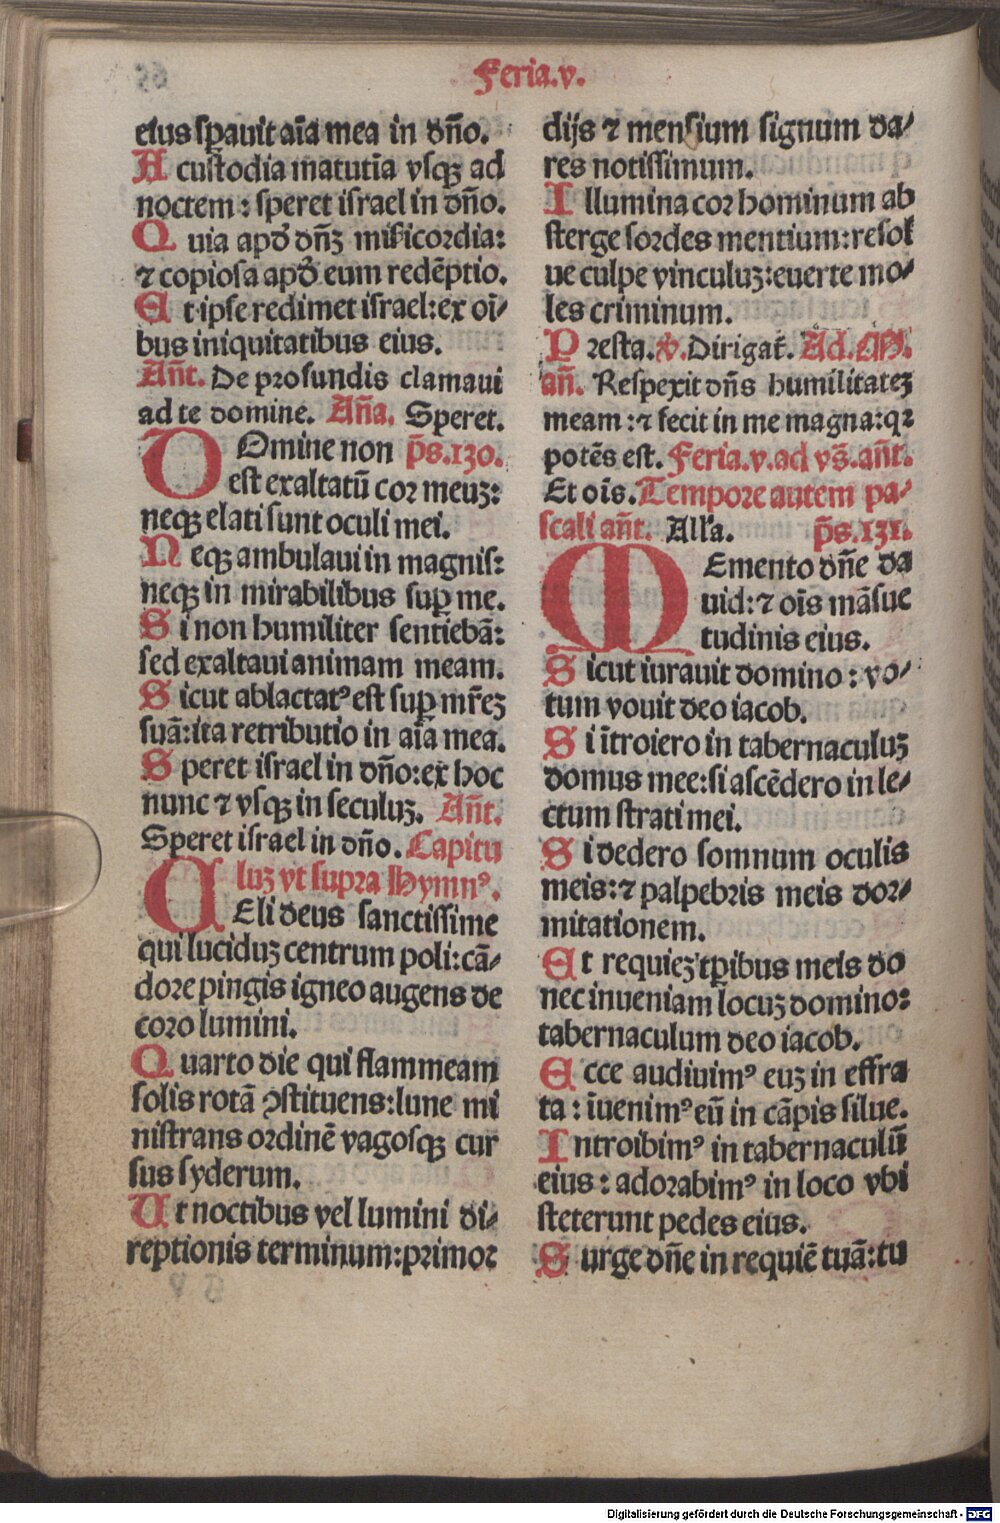 Feria.v.
eius sꝑauit aĩa mea in dño.
A custodia matutĩa vsqꝫ ad
noctem: speret israel in dño.
Q uia apđ dñꝫ misicordia:
⁊ copiosa apđ eum redẽptio.
E t ipse redimet israel: ex oĩ⸗
bus iniquitatibus eius.
Añt. De profundis clamaui
ad te domine. Aña. Speret.
DOmine non p̃s.130.
est exaltatũ cor meuꝫ:
neqꝫ elati sunt oculi mei.
N eqꝫ ambulaui in magnis:
neqꝫ in mirabilibus suꝑ me.
S i non humiliter sentiebã:
sed exaltaui animam meam.
S icut ablactatꝰ est suꝑ mr̃eꝫ
suã: ita retributio in aĩa mea.
S peret israel in dño: ex hoc
nunc ⁊ vsqꝫ in seculuꝫ. Añt.
Speret israel in dño. Capitu
luꝫ vt supra Hymnꝰ.
CEli deus sanctissime
qui luciduꝫ centrum poli: cã⸗
dore pingis igneo augens de
coro lumini.
Q uarto die qui flammeam
solis rotã ꝯstituens: lune mi
nistrans ordinẽ vagosqꝫ cur
sus syderum.
U t noctibus vel lumini di⸗
reptionis terminum: primor
dijs ⁊ mensium signum da⸗
res notissimum.
I llumina cor hominum ab
sterge sordes mentium: resol
ue culpe vinculuꝫ: euerte mo⸗
les criminum.
P resta. ℣. Dirigat̃. Ad. M.
añ. Respexit dñs humilitateꝫ
meam: ⁊ fecit in me magna: qꝛ
potẽs est. Feria.v.ad vs̃.añt.
Et oĩs. Tempore autem pa⸗
scali añt. Alła. p̃s.131.
MEmento dñe da
uid: ⁊ oĩs mãsue
tudinis eius.
S icut iurauit domino: vo⸗
tum vouit deo iacob.
S i ĩtroiero in tabernaculuꝫ
domus mee: si ascẽdero in le⸗
ctum strati mei.
S i dedero somnum oculis
meis: ⁊ palpebris meis dor⸗
mitationem.
E t requieꝫ tꝑibus meis do
nec inueniam locuꝫ domino:
tabernaculum deo iacob.
E cce audiuimꝰ euꝫ in effra
ta: ĩuenimꝰ eũ in cãpis silue.
I ntroibimꝰ in tabernaculũ
eius: adorabimꝰ in loco vbi
steterunt pedes eius.
S urge dñe in requiẽ tuã: tu
Digitalisierung gefördert durch die Deutsche Forschungsgemeinschaft - DFG